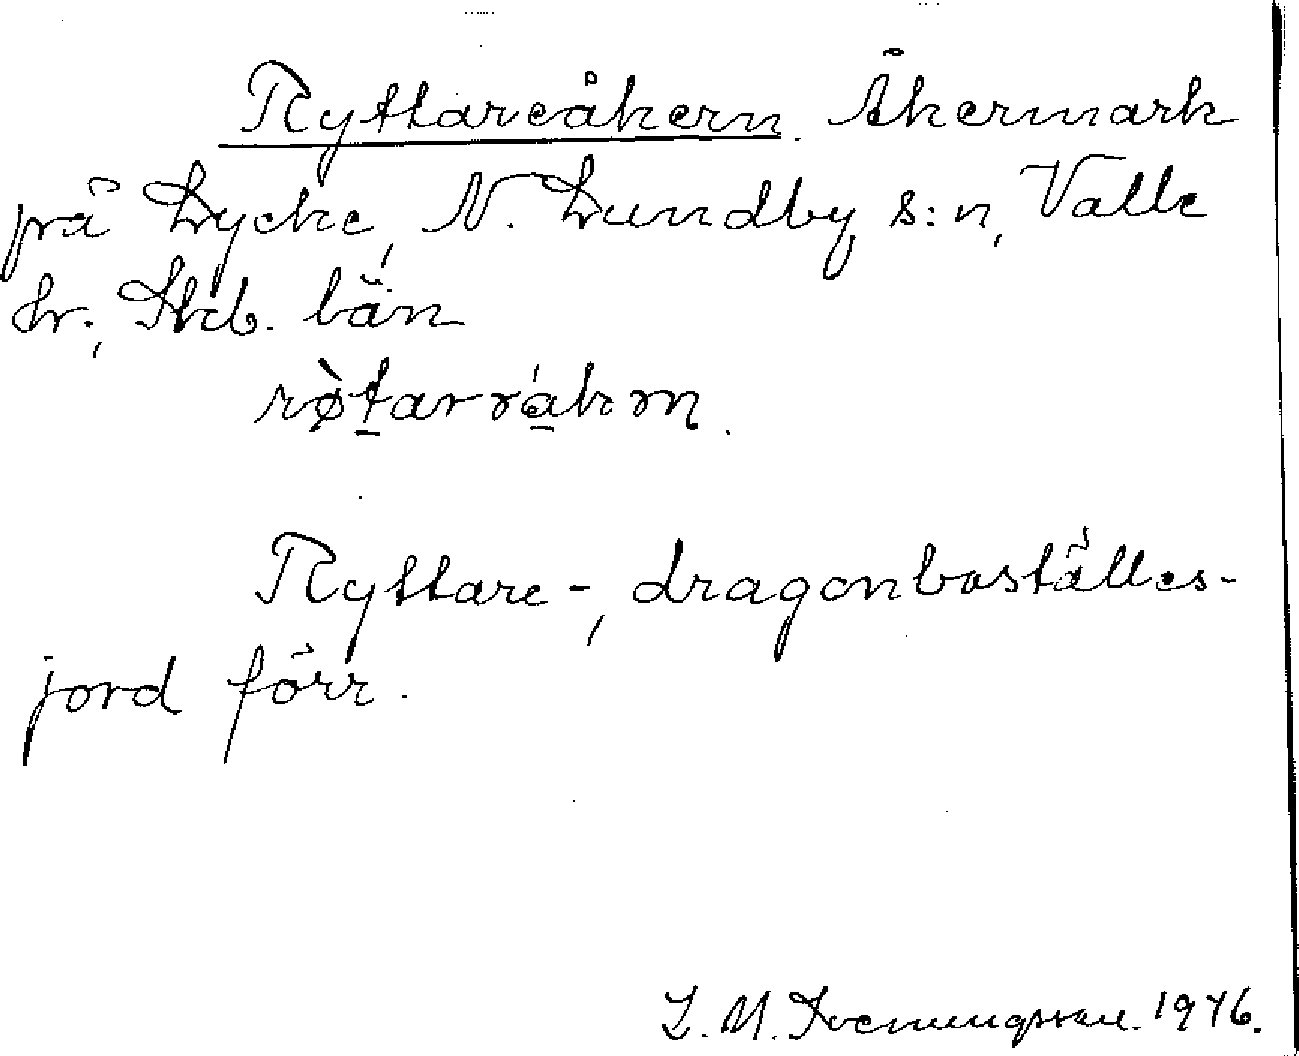 Ryttareåkern. Åkermark
på Lycke, N. Lundby s:n, Valle
hr., Skb. län
rø̀tarråkrn.
Ryttare-, dragonboställes-
jord förr.
1946.